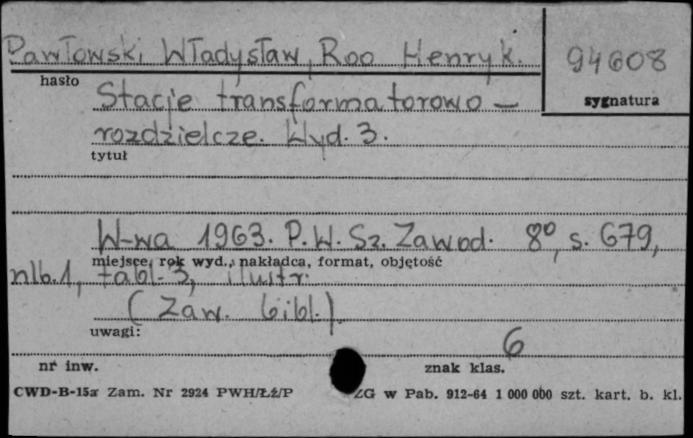 Pawłowski Władysław, Roo Henryk.
94608
hasło
sygnatura
Stacje transformatorowo –
rozdzielcze. Wyd. 3.
tytuł
W-wa 1963. P. W. Sz. Zawod. 8°, s. 679,
miejsce, rok wyd., nakładca, format, objętość
nlb. 1, tabl. 3, ilustr.
(Zaw. bibl.).
uwagi:
6
nr inw.
znak klas.
CWD-B-15a Zam. Nr 2924 PWH/Łż/P
ZG w Pab. 912-64 1 000 000 szt. kart. b. kl.